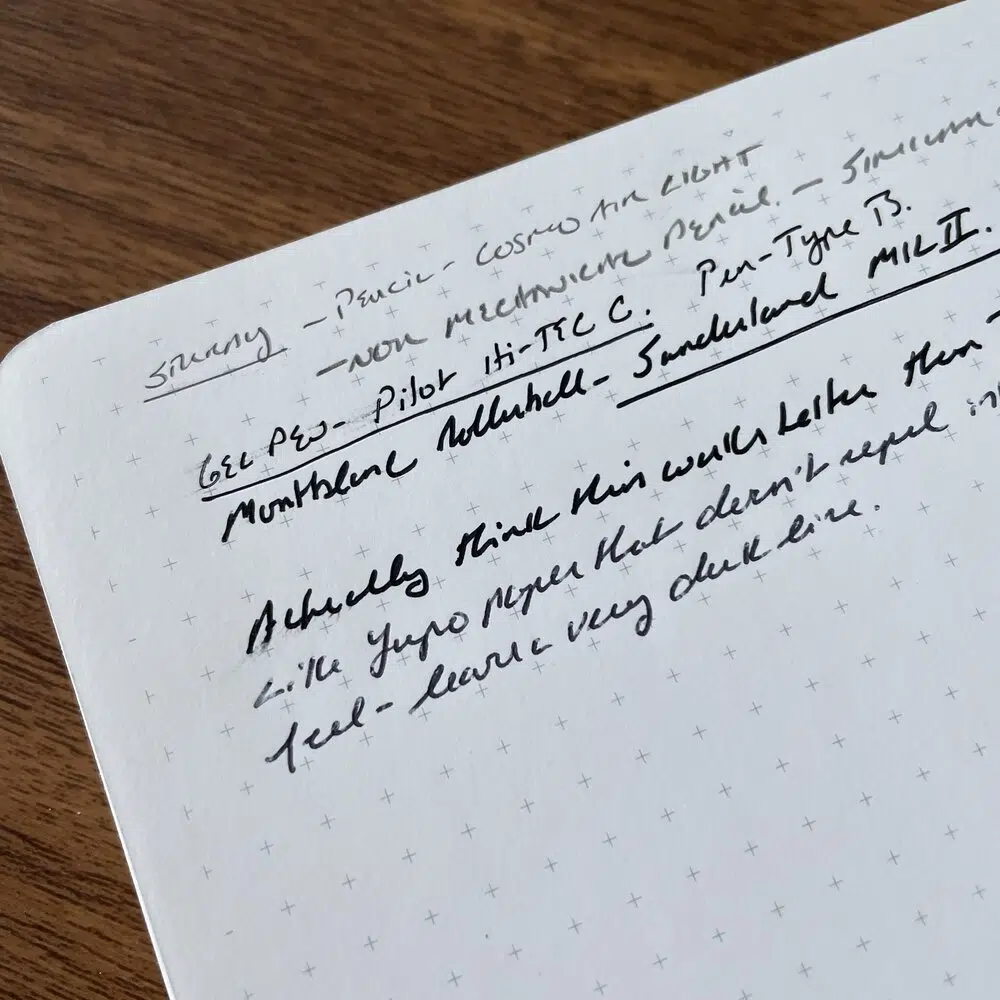 – Pencil – COSMO AIR LIGHT
– NON MECHANICAL PENCIL. – SIMILAR
GEL PEN – Pilot Hi-TEC C. Pen-Type B.
Montblanc Rollerball – Sunderland MK II.
Actually think this works better than
Like Yupo paper that doesn't repel
feel – leaves a very dark line.